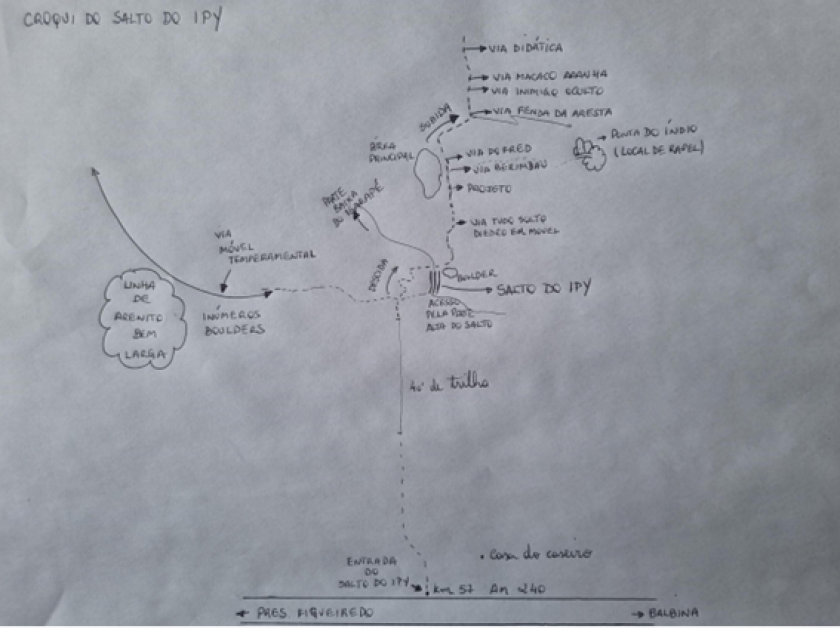 CROQUI DO SALTO DO IPY
VIA DIDÁTICA
VIA MACACO ARANHA
VIA INIMIGO OCULTO
VIA FENDA DA ARESTA
SUBIDA
PONTA DO ÍNDIO
(LOCAL DE RAPEL)
ÁREA
PRINCIPAL
VIA DO FRED
VIA BERIMBAU
PROJETO
PARTE
BAIXA
DO IGARAPÉ
VIA TUDO SOLTO
DIEDRO EM MÓVEL
VIA
MÓVEL
TEMPERAMENTAL
DESCIDA
BOULDER
SALTO DO IPY
LINHA
DE
ARENITO
BEM
LARGA
INÚMEROS
BOULDERS
ACESSO
PELA PARTE
ALTA DO SALTO
40' de trilha
ENTRADA
DO
SALTO DO IPY
• casa do caseiro
km 57 Am 240
← PRES FIGUEIREDO
→ BALBINA